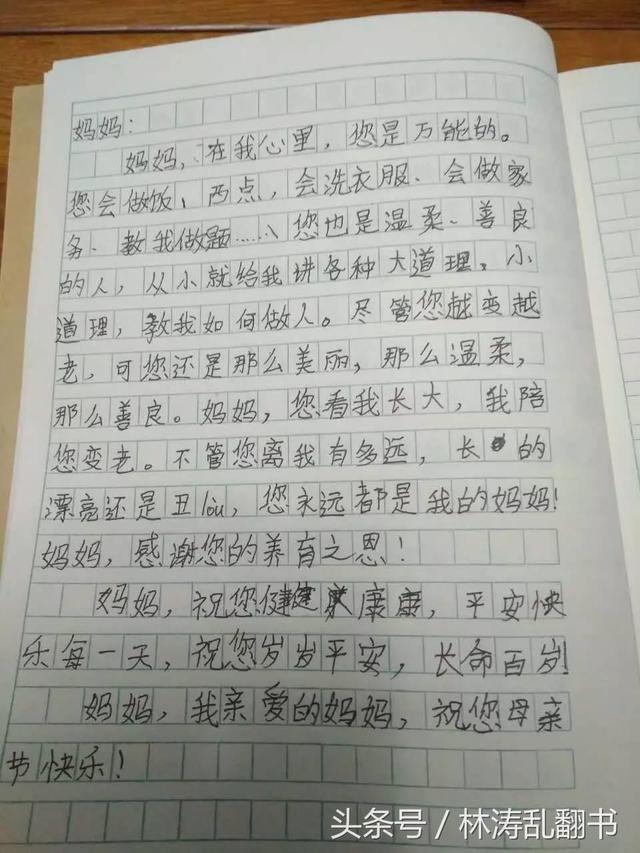 妈妈:
妈妈,在我心里,您是万能的。
您会做饭、西点,会洗衣服、会做家
务、教我做题……、您也是温柔、善良
的人,从小就给我讲各种大道理、小
道理,教我如何做人。尽管您越变越
老,可您还是那么美丽,那么温柔,
那么善良。妈妈,您看我长大,我陪
您变老。不管您离我有多远,长的
漂亮还是丑lòu,您永远都是我的妈妈!
妈妈,感谢您的养育之恩!
妈妈,祝您健康康,平安快
乐每一天,祝您岁岁平安,长命百岁!
妈妈,我亲爱的妈妈,祝您母亲
节快乐!
头条号/林涛乱翻书